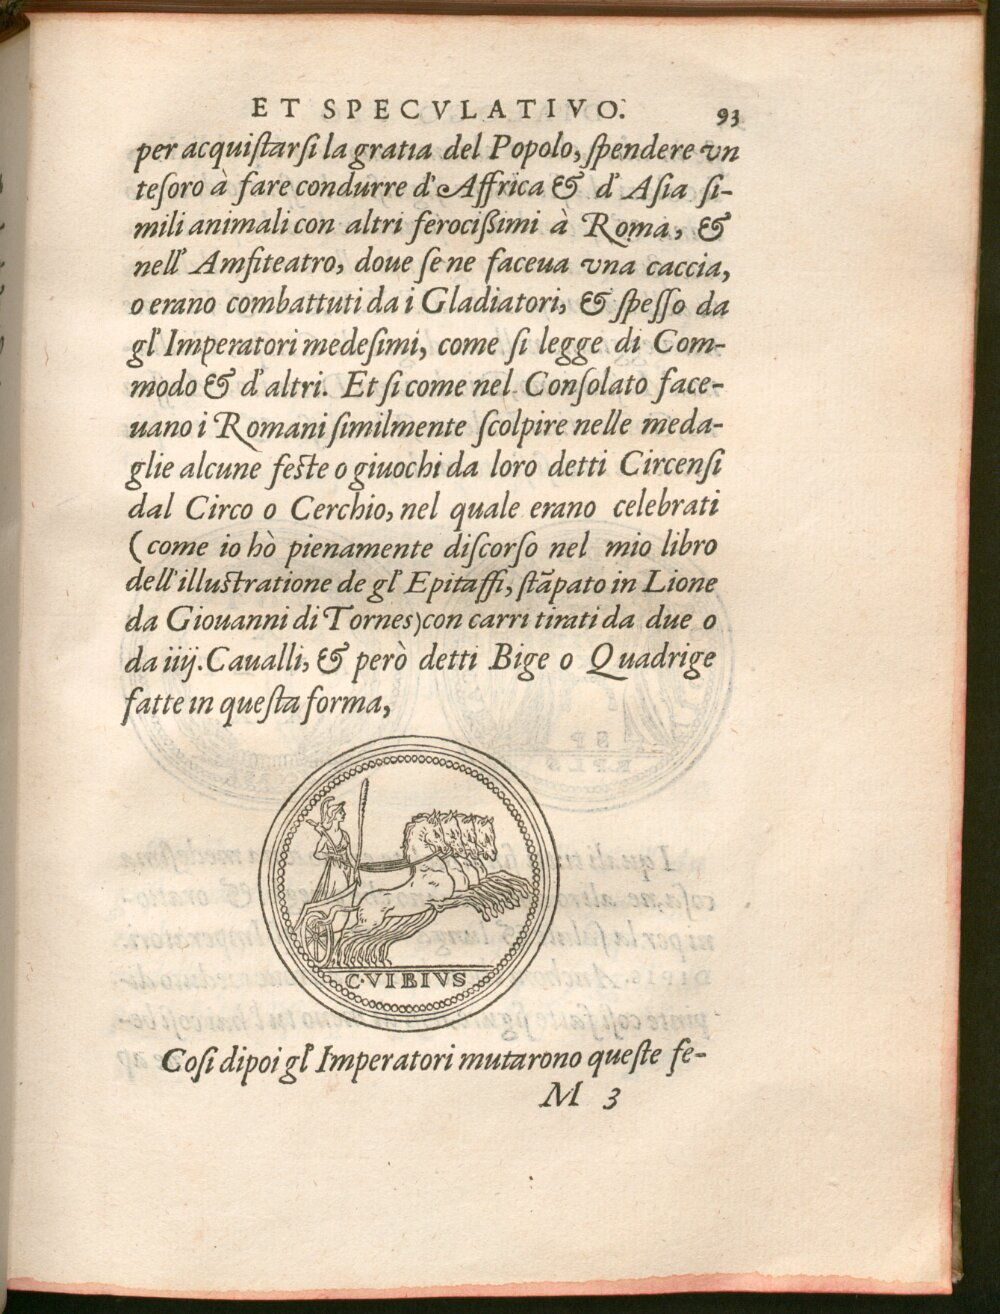 ET SPECVLATIVO. 93
per acquistarsi la gratia del Popolo, spendere vn
tesoro à fare condurre d'Affrica & d'Asia si-
mili animali con altri ferocißimi à Roma, &
nell'Amfiteatro, doue se ne faceua vna caccia,
o erano combattuti da i Gladiatori, & spesso da
gl'Imperatori medesimi, come si legge di Com-
modo & d'altri. Et si come nel Consolato face-
uano i Romani similmente scolpire nelle meda-
glie alcune feste o giuochi da loro detti Circensi
dal Circo o Cerchio, nel quale erano celebrati
(come io hò pienamente discorso nel mio libro
dell'illustratione de gl'Epitaffi, stãpato in Lione
da Giouanni di Tornes) con carri tirati da due o
da iiij. Caualli, & però detti Bige o Quadrige
fatte in questa forma,
C·VIBIVS
Cosi dipoi gl'Imperatori mutarono queste fe-
M 3